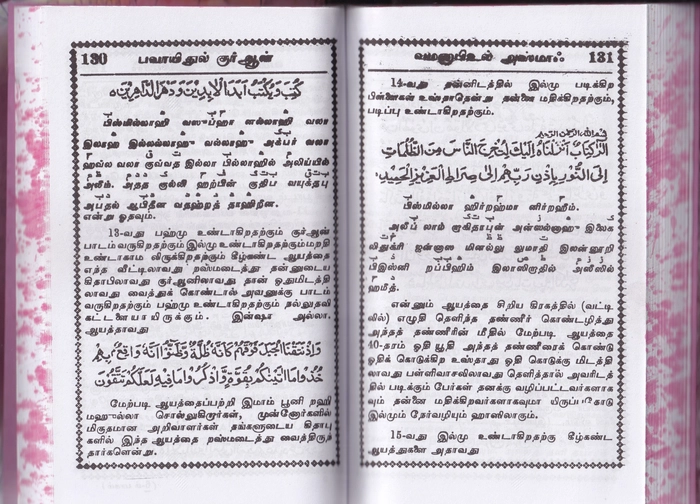 130 பவாயிதுல் குர்ஆன்
كُتِبَ وَيُكْتَبُ اَبَدَ الْاٰبِدِيْنَ وَدَهْرَ الدَّاهِرِيْنَ
பிஸ்மில்லாஹி வஸுப்ஹா னல்லாஹி வலா
இலாஹ இல்லல்லாஹு வல்லாஹு அக்பர் வலா
ஹவ்ல வலா குவ்வத இல்லா பில்லாஹில் அலிய்யில்
அலீம். அதத குல்லி ஹற்பின் குதிப வயுக்தபு
அபதல் ஆபிதீன வதஹ்றத் தாஹிரீன.
என்று ஓதவும்.
13-வது பஹ்மு உண்டாகிறதற்கும் குர்ஆன்
பாடம் வருகிறதற்கும் இல்மு உண்டாகிறதற்கும் மறதி
உண்டாகாம லிருக்கிறதற்கும் கீழ்கண்ட ஆயத்தை
எந்த வீட்டிலாவது றஸ்மடைத்து தன்னுடைய
கிதாபிலாவது குர்ஆனிலாவது தான் ஓதுமிடத்தி
லாவது வைத்துக் கொண்டால் அவனுக்கு பாடம்
வருகிறதற்கும் பஹ்மு உண்டாகிறதற்கும் நல்லுதவி
கட்டளையாயிருக்கும். இன்ஷா அல்லா.
ஆயத்தாவது
وَاِذْ نَتَقْنَا الْجَبَلَ فَوْقَهُمْ كَاَنَّهٗ ظُلَّةٌ وَّظَنُّوْا اَنَّهٗ وَاقِعٌ بِهِمْ
خُذُوْا مَا اٰتَيْنٰكُمْ بِقُوَّةٍ وَّاذْكُرُوْا مَا فِيْهِ لَعَلَّكُمْ تَتَّقُوْنَ
மேற்படி ஆயத்தைப்பற்றி இமாம் பூனி றஹி
மஹுல்லா சொல்லுகிறார்கள், முன்னோர்களில்
மிகுதமான அறிவாளர்கள் தங்களுடைய கிதாபு
களில் இந்த ஆயத்தை றஸ்மடைத்து வைத்திருந்
தார்களென்று.
வமனுபிஉல் அஸ்மாஃ 131
14-வது தன்னிடத்தில் இல்மு படிக்கிற
பிள்ளைகள் உஸ்தாதென்று தன்னை மதிக்கிறதற்கும்,
படிப்பு உண்டாகிறதற்கும்.
بسم الله الرحمن الرحيم
الٓرٰ كِتَابٌ اَنْزَلْنَاهُ اِلَيْكَ لِتُخْرِجَ النَّاسَ مِنَ الظُّلُمَاتِ
اِلَى النُّوْرِ بِاِذْنِ رَبِّهِمْ اِلٰى صِرَاطِ الْعَزِيْزِ الْحَمِيْدِ
பிஸ்மில்லா ஹிர்றஹ்மா னிர்றஹீம்.
அலீப் லாம் றாகிதாபுன் அன்ஸல்னாஹு இலைக
லிதுக்ரி ஜன்னாஸ மினல்லு லுமாதி இலன்னூரி
பிஇஸ்னி றப்பிஹிம் இலாஸிறாதில் அஸீஸில்
ஹமீத்.
என்னும் ஆயத்தை சிறிய கிரகத்தில் (வட்டி
லில்) எழுதி தெளிந்த தண்ணீர் கொண்டழித்து
அந்தத் தண்ணீரின் மீதில் மேற்படி ஆயத்தை
40-தரம் ஓதி யூதி அந்தத் தண்ணீரைக் கொண்டு
ஓதிக் கொடுக்கிற உஸ்தாது ஓதி கொடுக்கு மிடத்தி
லாவது பள்ளிவாசலிலாவது தெளித்தால் அவரிடத்
தில் படிக்கும் பேர்கள் தனக்கு வழிப்பட்டவர்களாக
வும் தன்னை மதிக்கிறவர்களாகவுமா யிருப்பதோடு
இல்மும் நேர்வழியும் ஹாஸிலாகும்.
15-வது இல்மு உண்டாகிறதற்கு கீழ்கண்ட
ஆயத்துகளை அதாவது